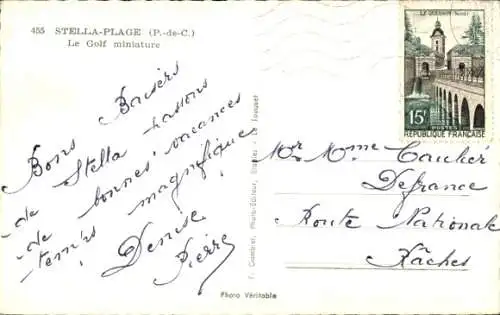 455 STELLA-PLAGE (P.-de-C.)
Le Golf miniature
Bons Baisers
de Stella passons
de bonnes vacances
temps magnifique
Denise
Pierre
Photo-Editeur, Etaples - Le Touquet
Photo Véritable
LE QUESNOY (Nord)
15F
POSTES
REPUBLIQUE FRANÇAISE
Mr Mme Caulier
Defrance
Route Nationale
Râches